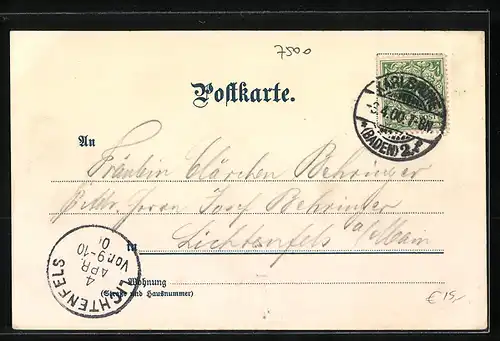 7500
Postkarte.
KARLSRUHE
-3.4.00.7-8N.
*(BADEN)2.f*
An
Fräulein Clärchen Behringer
Herrn Josef Behringer
in Lichtenfels a/Main
LICHTENFELS
4
APR
Vor.9-10
00
Wohnung
(Straße und Hausnummer)
€15,-